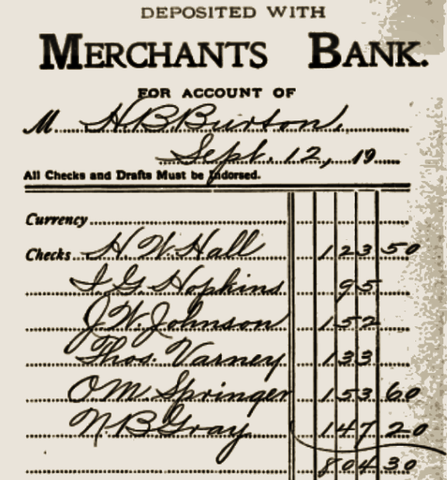 DEPOSITED WITH
MERCHANTS BANK.
FOR ACCOUNT OF
M H. B. Burton,
Sept. 12, 19
All Checks and Drafts Must be Indorsed.
Currency
Checks H. W. Hall 123 50
I. G. Hopkins 95
J. W. Johnson 152
Thos. Varney 133
O. M. Springer 153 60
N. B. Gray 147 20
804 30